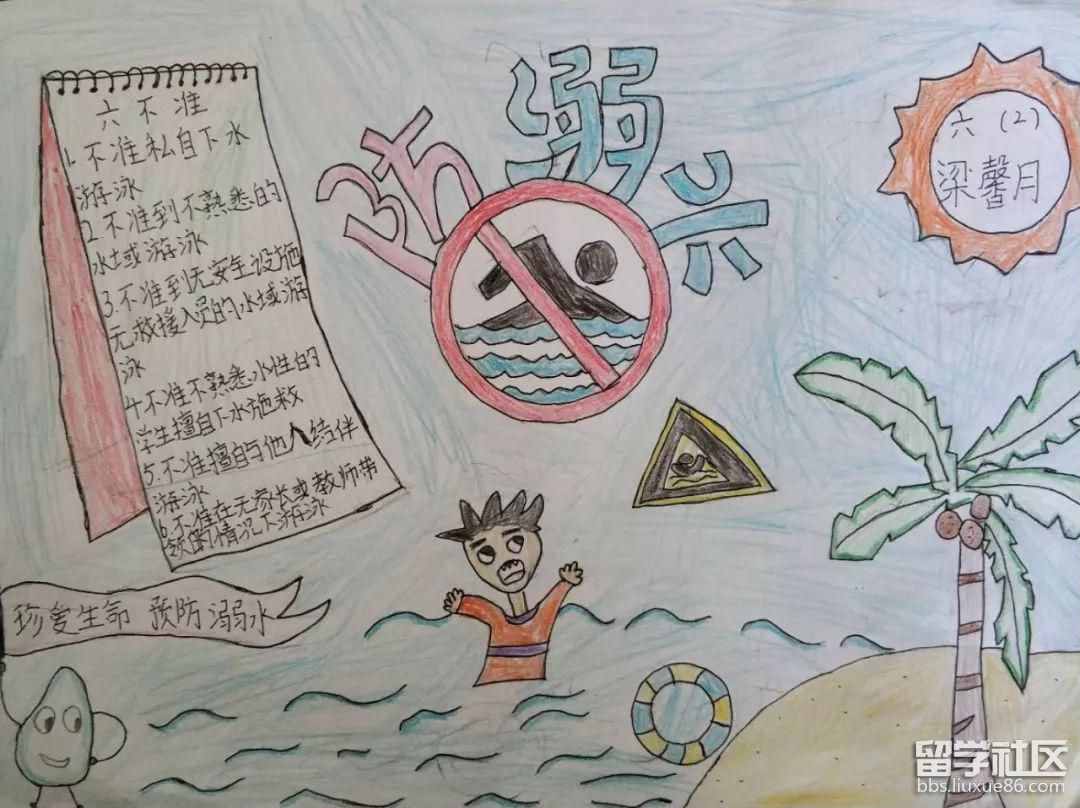 六不准
1.不准私自下水
游泳
2.不准到不熟悉的
水域游泳
3.不准到无安全设施
无救援人员的水域游
泳
4.不准不熟悉水性的
学生擅自下水施救
5.不准擅自与他人结伴
游泳
6.不准在无家长或教师带
领的情况下游泳
防溺六
六（2）
梁馨月
珍爱生命 预防溺水
留学社区
bbs.liuxue86.com